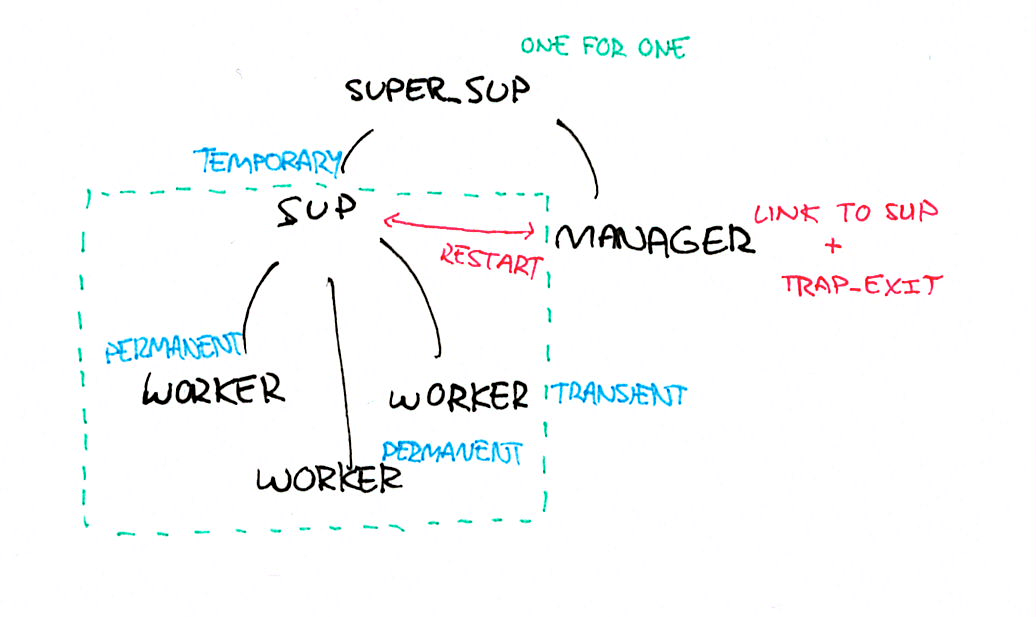 ONE FOR ONE
SUPER_SUP
TEMPORARY
SUP
MANAGER
LINK TO SUP
+
TRAP_EXIT
RESTART
PERMANENT
WORKER
WORKER
TRANSIENT
PERMANENT
WORKER